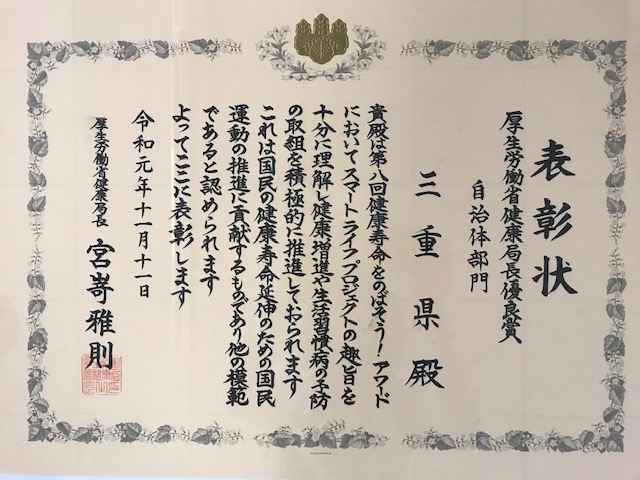 表彰状
厚生労働省健康局長優良賞
自治体部門
三重県殿
貴殿は第八回健康寿命をのばそう！アワード
においてスマートライフプロジェクトの趣旨を
十分に理解し健康増進や生活習慣病の予防
の取組を積極的に推進しておられます
これは国民の健康寿命延伸のための国民
運動の推進に貢献するものであり他の模範
であると認められます
よってここに表彰します
令和元年十一月十一日
厚生労働省健康局長 宮嵜雅則